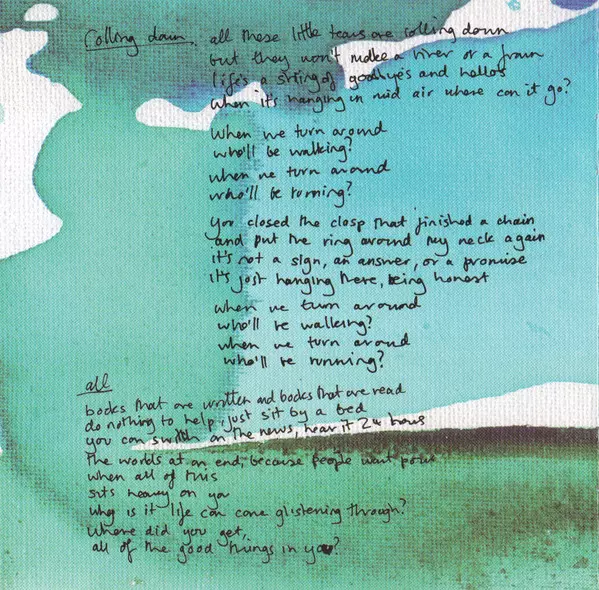 rolling down. all these little tears are rolling down
but they won't make a river or a frown
life's a string of goodbyes and hellos
when it's hanging in mid air where can it go?
When we turn around
who'll be walking?
when we turn around
who'll be running?
you closed the clasp that finished a chain
and put the ring around my neck again
it's not a sign, an answer, or a promise
it's just hanging there, being honest
when we turn around
who'll be walking?
when we turn around
who'll be running?
all
books that are written and books that are read
do nothing to help, just sit by a bed
you can switch on the news, hear it 24 hours
The worlds at an end, because people want power
when all of this
sits heavy on you
why is it life can come glistening through?
Where did you get,
all of the good things in you?